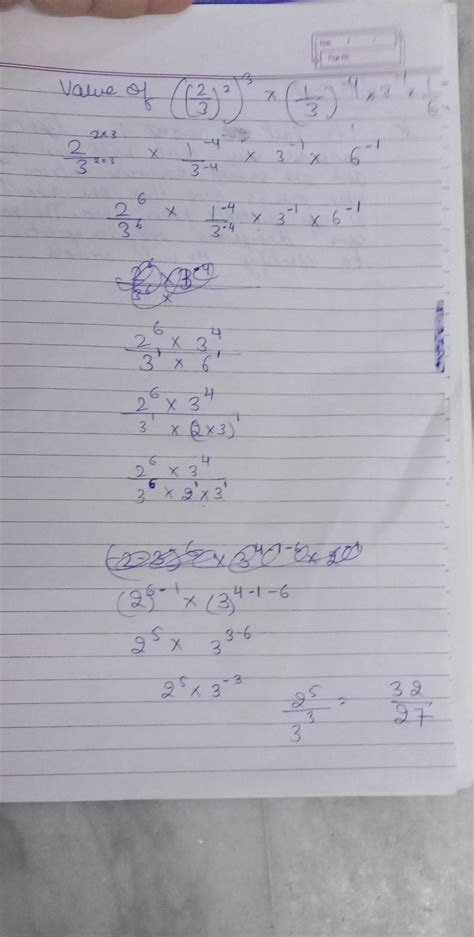 Value of ((2/3)^2)^3 × (1/3)^-4 × 3^-1 × 1/6
2^2×3/3^2×3 × 1^-4/3^-4 × 3^-1 × 6^-1
2^6/3^6 × 1^-4/3^-4 × 3^-1 × 6^-1
2^6 × 3^4 / 3^1 × 6^1
2^6 × 3^4 / 3^1 × (2×3)^1
2^6 × 3^4 / 3^6 × 2^1 × 3^1
(2)^6-1 × (3)^4-1-6
2^5 × 3^3-6
2^5 × 3^-3 2^5/3^3 = 32/27